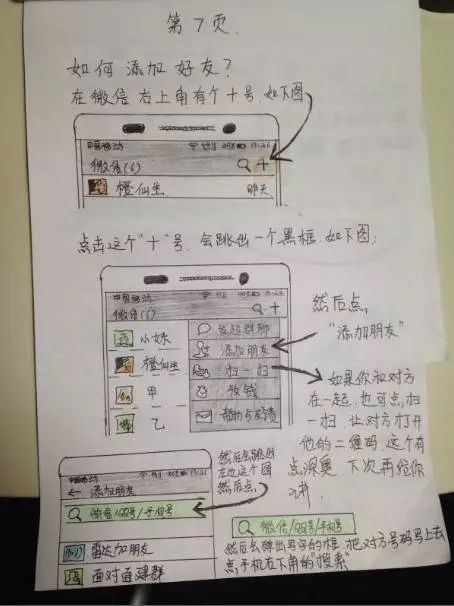 第7页.
如何添加好友?
在微信右上角有个十号.如下图
中国移动
15:26
微信(6)
橙仙生
昨天
点击这个"十"号.会跳出一个黑框.如下图:
中国移动
微信(6)
小妹
橙仙生
甲
乙
发起群聊
添加朋友
扫一扫
收钱
帮助与反馈
然后点,
"添加朋友"
如果你和对方
在一起,也可点扫
一扫,让对方打开
他的二维码.这个有
点深奥,下次再给你
讲.
然后会跳出
左边这个图
然后点,
← 添加朋友
微信/QQ号/手机号
雷达加朋友
面对面建群
微信/QQ号/手机号
然后会跳出写字的框,把对方号码写上去
点手机右下角的"搜索"